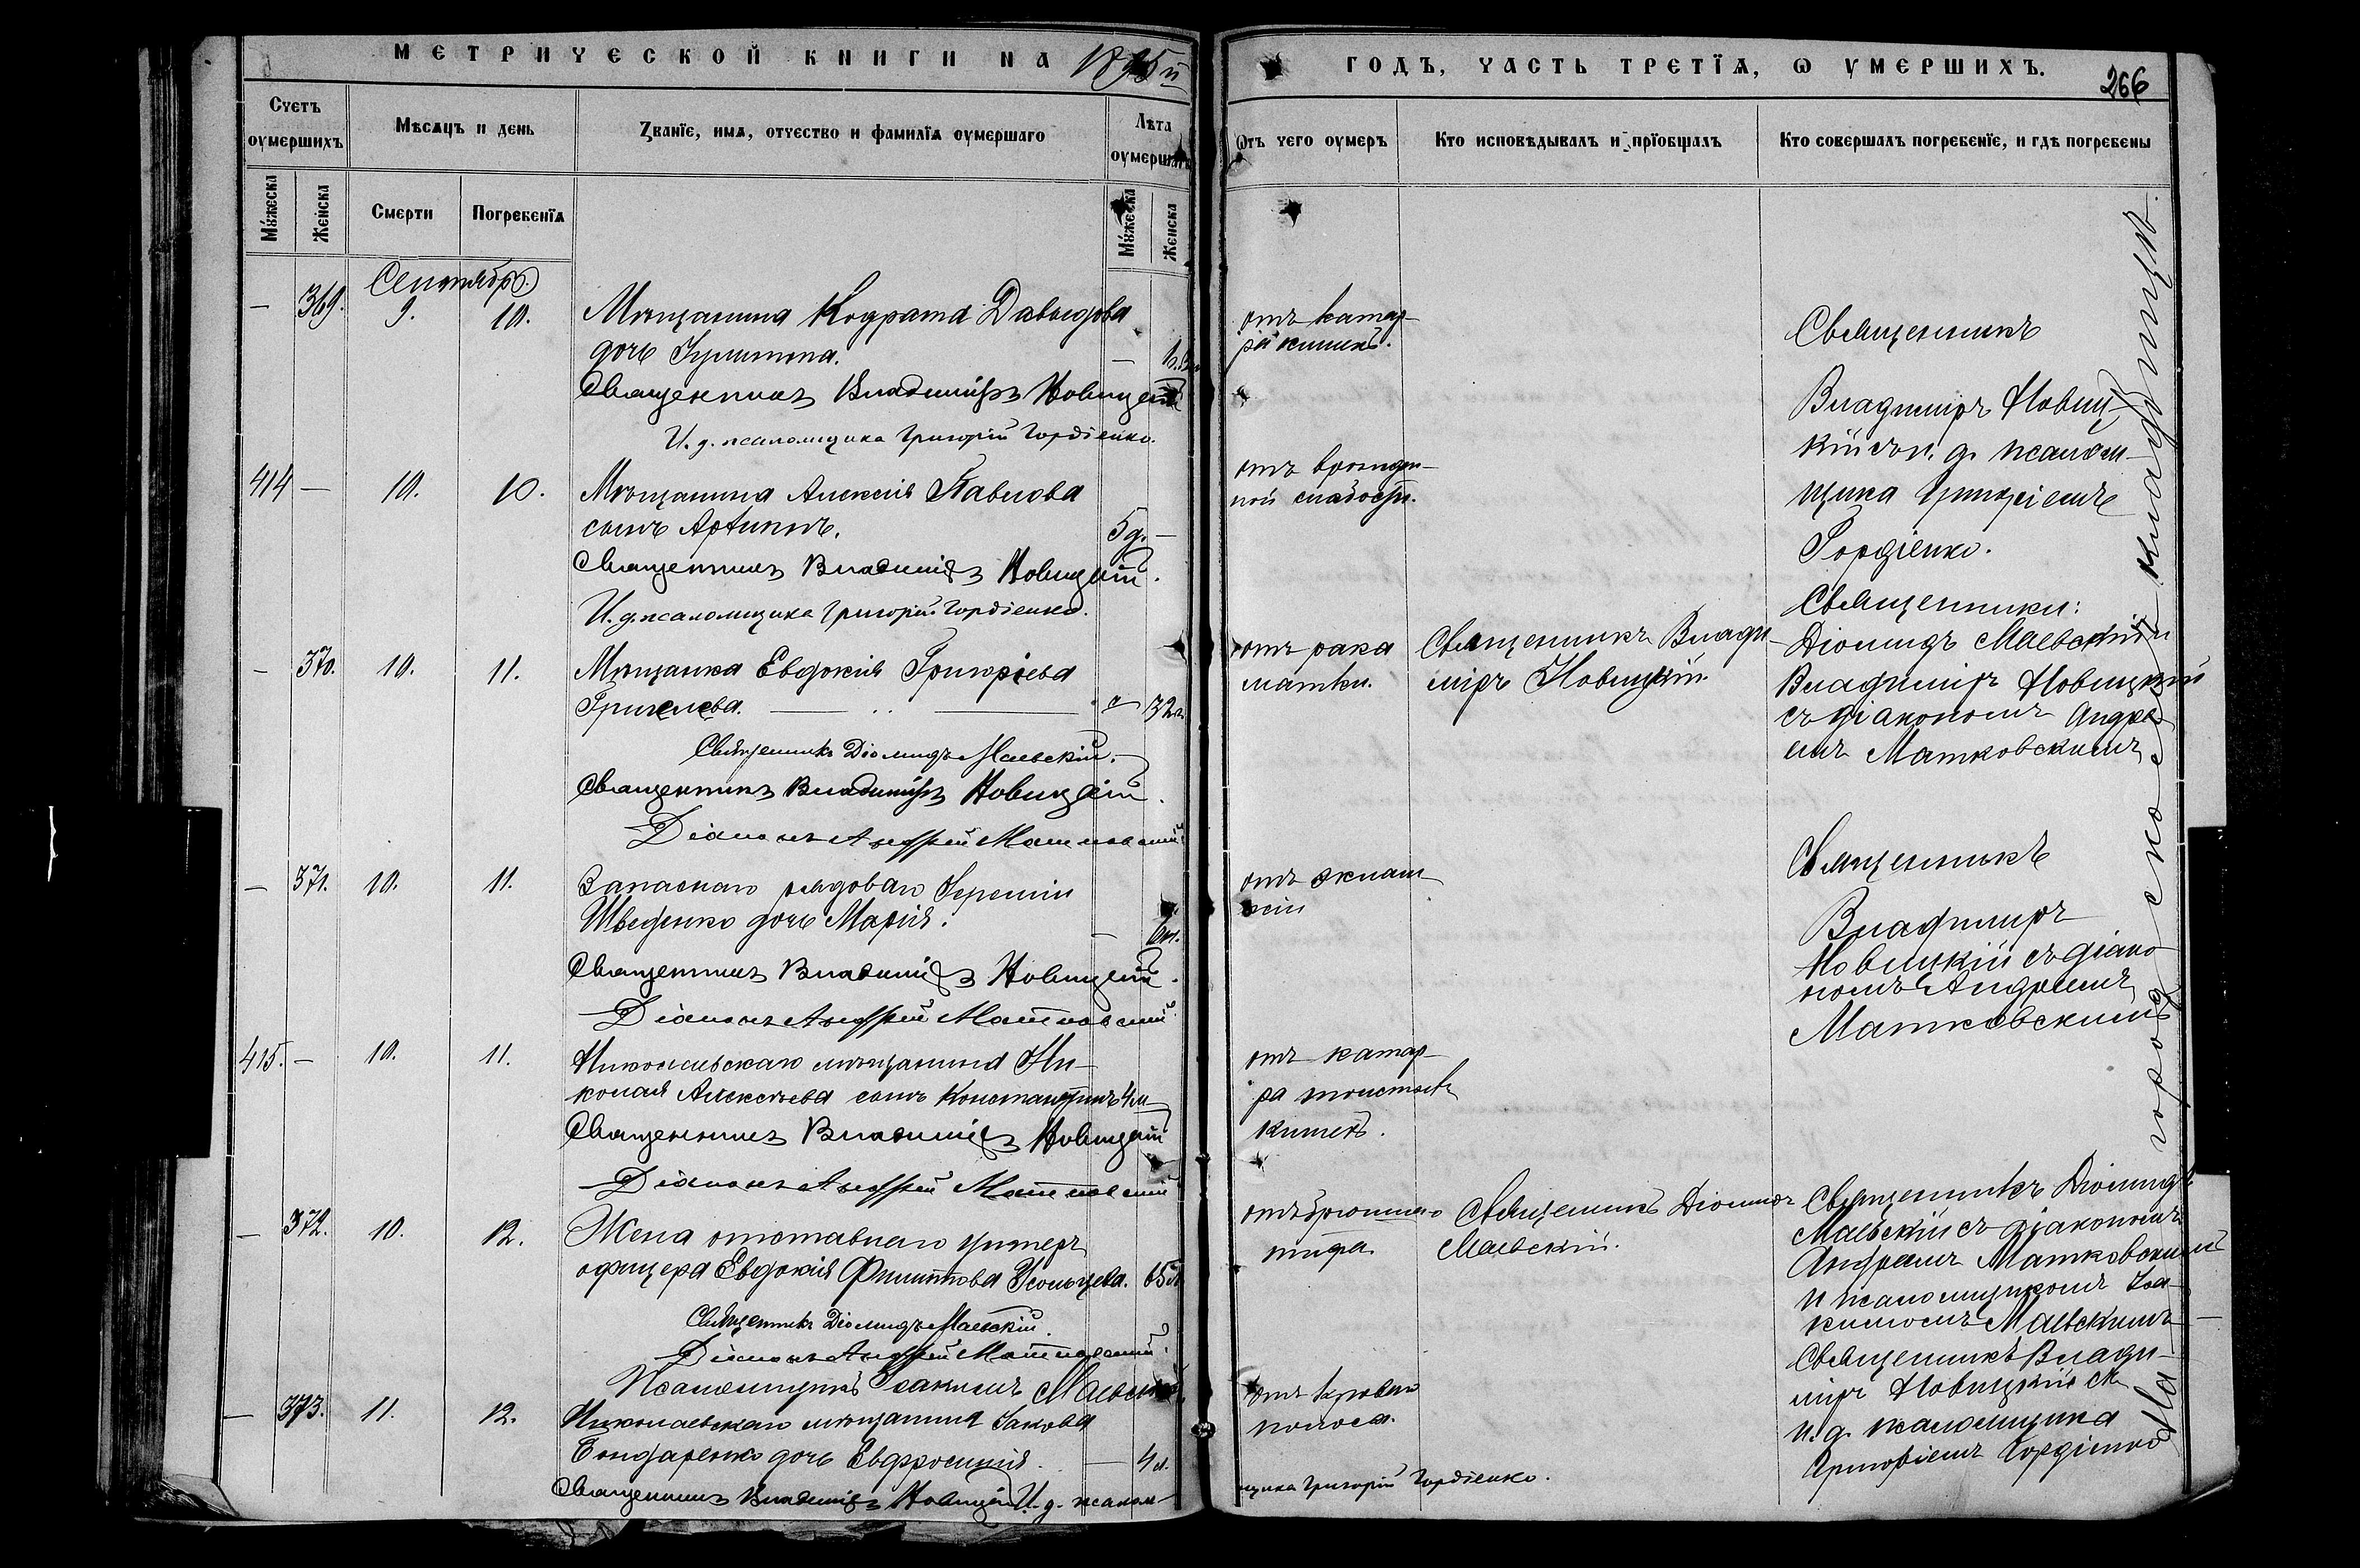 МЕТРИЧЕСКОЙ КНИГИ НА 1895й
ГОДЪ, ЧАСТЬ ТРЕТЇѦ, Ѡ УМЕРШИХЪ.
266
Счетъ оумершихъ
Мѣсѧцъ и день
Званїе, имѧ, отчество и фамилїѧ оумершаго
Лѣта оумершаго
Ѡтъ чего оумеръ
Кто исповѣдывалъ и прїобщалъ
Кто совершалъ погребенїе, и гдѣ погребены
Мужеска
Женска
Смерти
Погребенїѧ
Мужеска
Женска
Сентябрь
— 369. 9. 10. Мѣщанина Кодрата Давыдова
дочь Іулиттта. —
Священникъ Владиміръ Новицкій
И. д. псаломщика Григорій Гордіенко.
отъ катар-
ра кишекъ.
Священникъ
Владиміръ Новиц-
кій съ и. д. псалом-
щика Григоріемъ
Гордіенко.
414 — 10. 10. Мѣщанина Алексія Павлова
сынъ 5 д. —
Священникъ Владиміръ Новицкій.
И. д. псаломщика Григорій Гордіенко.
отъ врожден-
ной слабости.
— 370. 10. 11. Мѣщанка Евдокія Григорьева
32 л.
Священникъ Діомидъ Маевскій.
Священникъ Владиміръ Новицкій.
Діаконъ Андрей Матковскій
отъ рака
матки.
Священникъ Влади-
міръ Новицкій.
Священники:
Діомидъ Маевскій и
Владиміръ Новицкій
съ діакономъ Андре-
емъ Матковскимъ
— 371. 10. 11. Запаснаго рядоваго Іереміи
Шведенко дочь Марія. —
Священникъ Владиміръ Новицкій.
Діаконъ Андрей Матковскій
отъ эклам-
псіи
Священникъ
Владиміръ
Новицкій съ діако-
номъ Андреемъ
Матковскимъ
415. — 10. 11. Никольскаго мѣщанина Ни-
колая Алексѣева сынъ Константинъ 4 м
Священникъ Владиміръ Новицкій
Діаконъ Андрей Матковскій
отъ катар-
ра толстыхъ
кишекъ.
— 372. 10. 12. Жена отставнаго унтеръ
офицера Евдокія Филиппова Усольцева. 65 л
Священникъ Діомидъ Маевскій.
Діаконъ Андрей Матковскій.
Псаломщикъ Іоакимъ Маевскій
отъ брюшнаго
тифа.
Священникъ Діомидъ
Маевскій.
Священникъ Діомидъ
Маевскій съ діакономъ
Андреемъ Матковскимъ
и псаломщикомъ Іоа-
кимомъ Маевскимъ —
— 373. 11. 12. Николаевскаго мѣщанина Іакова
Бондаренко дочь Евфросинія. — 4
Священникъ Владиміръ Новицкій И. д. псалом-
щика Григорій Гордіенко.
отъ кроваго
поноса.
Священникъ Влади-
міръ Новицкій съ
и. д. псаломщика
Григоріемъ Гордіенко
На городскомъ кладбищѣ.